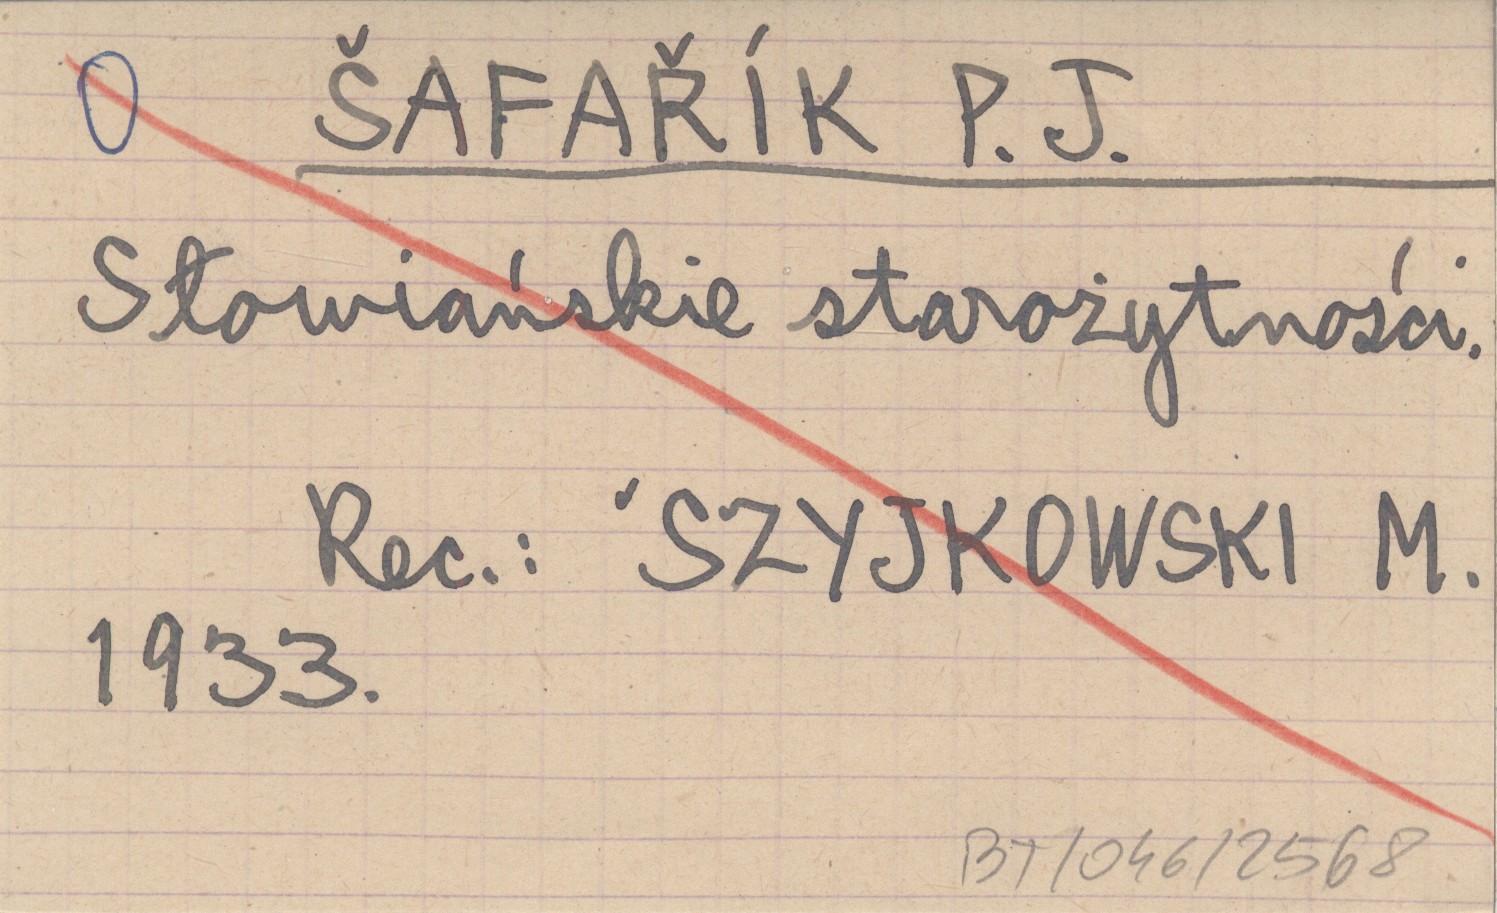 0 ŠAFAŘÍK P. J.
Słowiańskie starożytności.
Rec.: SZYJKOWSKI M.
1933.
BT/046/2568